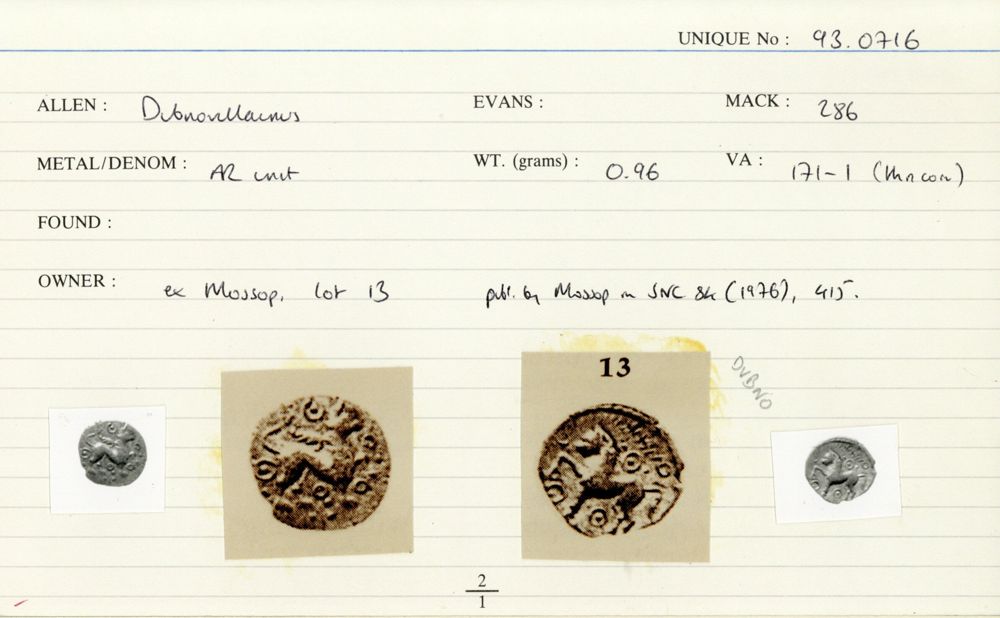 UNIQUE No : 93.0716
ALLEN : Dubnovellaunus EVANS : MACK : 286
METAL/DENOM : AR unit WT. (grams) : 0.96 VA : 171-1 (Kn con)
FOUND :
OWNER : ex Mossop, lot 13 publ. by Mossop in SNC 84 (1976), 415.
13
DVBNO
2
1